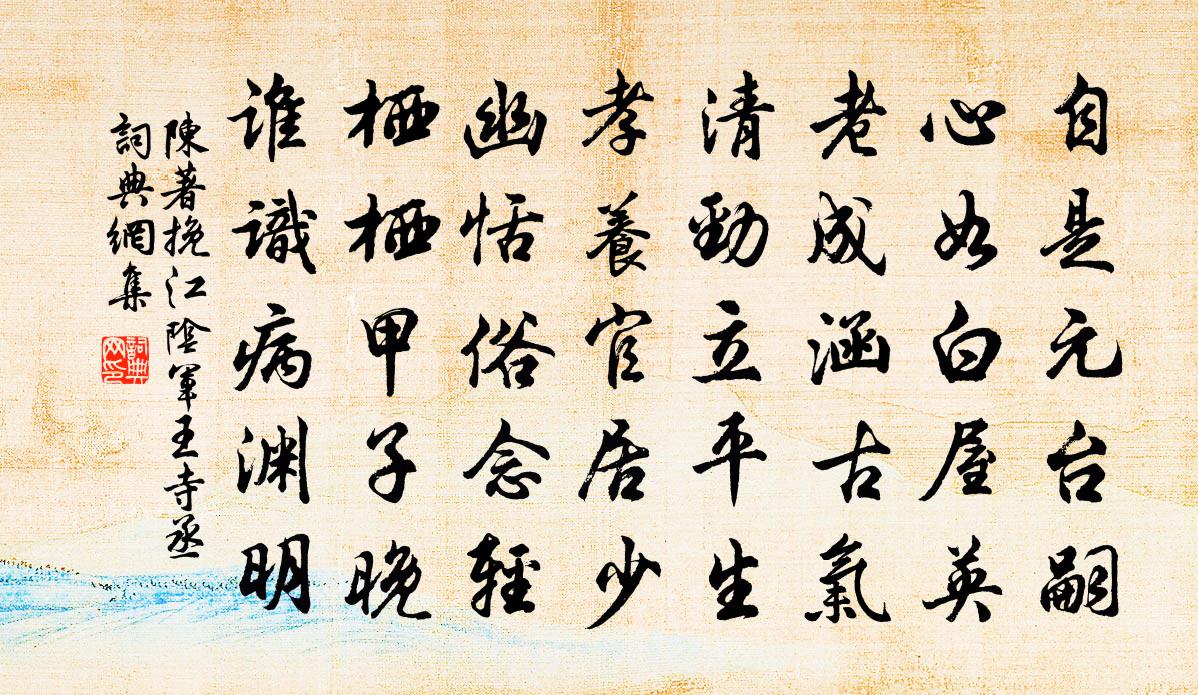 自是元台嗣
心如白屋英
老成涵古氣
清勁立平生
孝養官居少
幽恬俗念輕
栖栖甲子晚
谁識病渊明
陳著挽江陰軍王寺丞
詞典網集